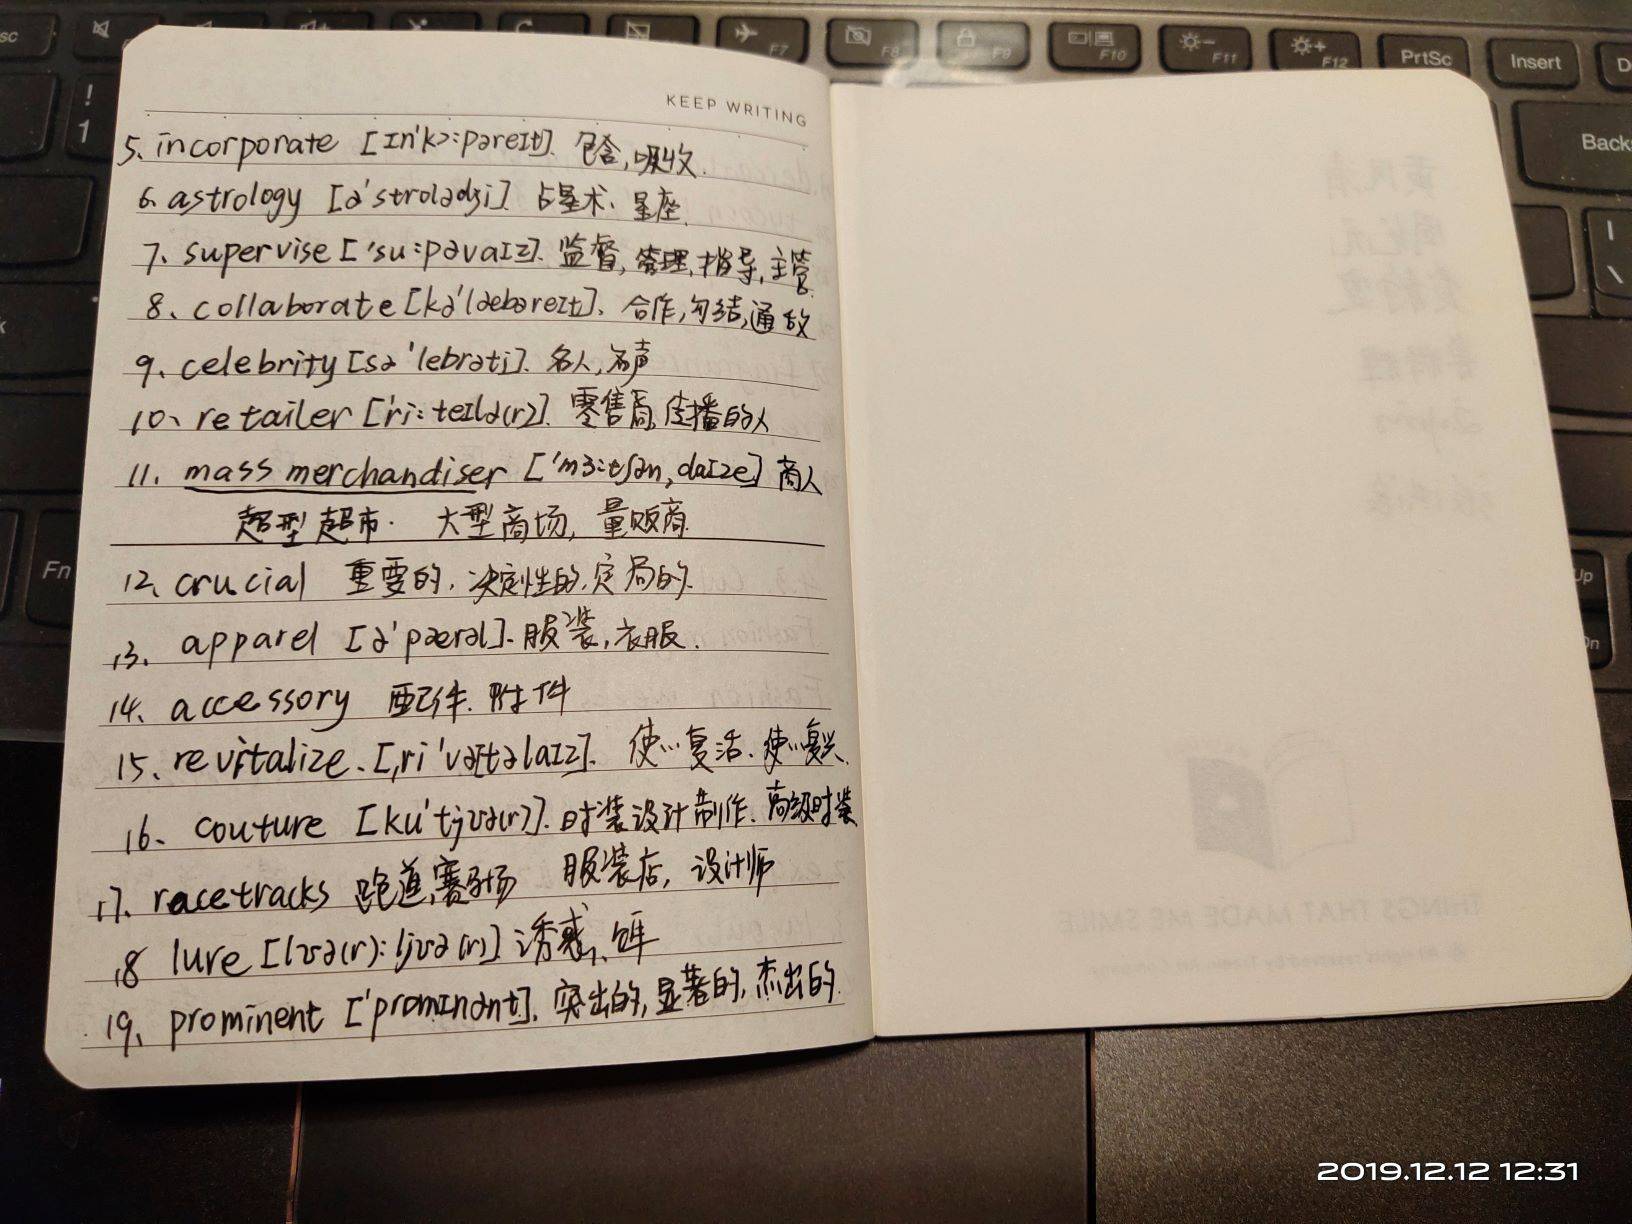 KEEP WRITING
5、incorporate [ɪn'kɔ:pəreɪt]. 包含,吸收.
6、astrology [ə'strɒlədʒi]. 占星术、星座.
7、supervise ['su:pəvaɪz]. 监督,管理,指导,主管.
8、collaborate [kə'læbəreɪt]、合作,勾结,通敌
9、celebrity [sə'lebrəti]. 名人,名声
10、retailer ['ri:teɪlə(r)]. 零售商,传播的人
11. mass merchandiser ['mɜ:tʃən,daɪze] 商人
超型超市. 大型商场, 量贩商.
12、crucial 重要的,决定性的,定局的.
13. apparel [ə'pærəl]. 服装,衣服.
14、accessory 配件. 附件
15、revitalize. [,ri'vaɪtəlaɪz]. 使…复活. 使…复兴.
16、couture [ku'tjʊə(r)]. 时装设计制作. 高级时装
服装店, 设计师
17. racetracks 跑道,赛马场
18 lure [lʊə(r):ljʊə(r)] 诱惑,
19、prominent ['prɒmɪnənt]. 突出的,显著的,杰出的.
Esc
F7
F8
F9
F10
F11
F12
PrtSc
Insert
!
1
Fn
Backs
Up
THINGS THAT MADE ME SMILE
2019.12.12 12:31